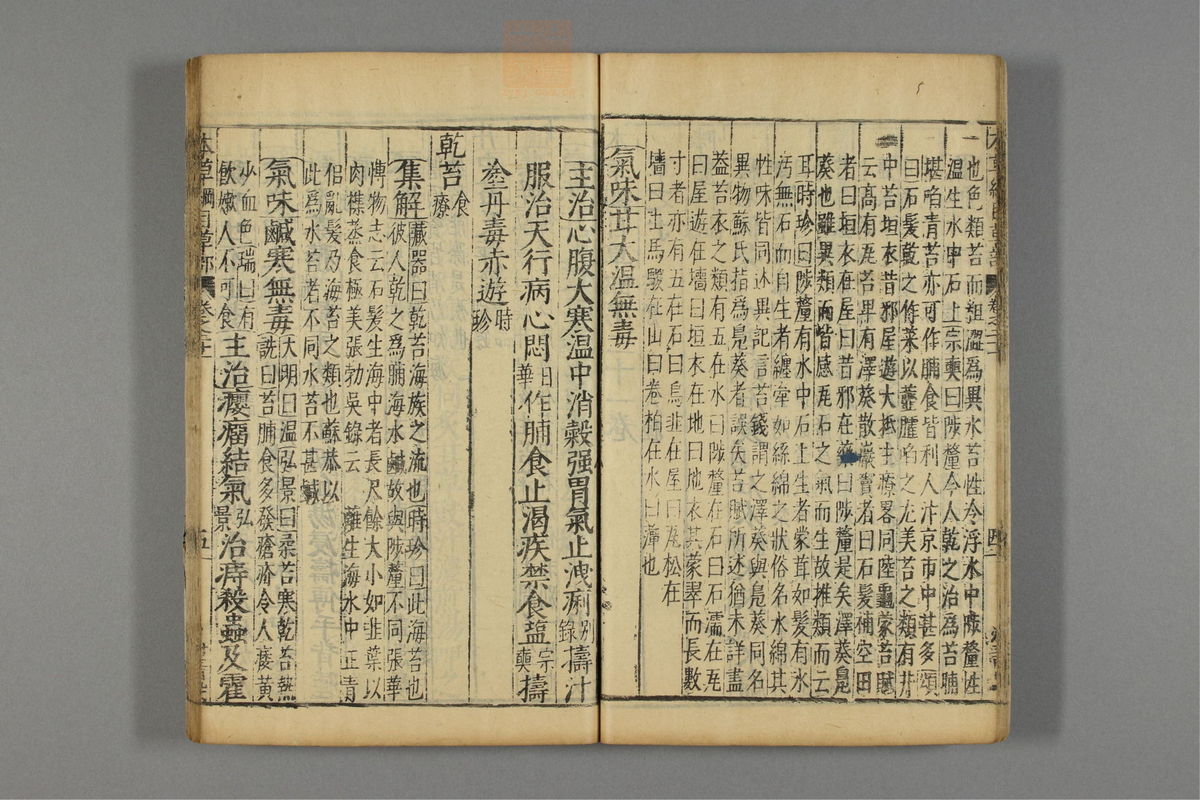 也色類苔而粗澀爲異水苔性冷浮水中陟釐性
温生水中石上宗奭曰陟釐今人乾之治爲苔脯
堪啗青苔亦可作脯食皆利人汴京市中甚多頌
曰石髮乾之作菜以虀臛啗之尤美苔之類有井
中苔垣衣昔邪屋遊大抵主療畧同陸龜蒙苔賦
云高有瓦苔卑有澤葵散巖竇者曰石髮補空田
者曰垣衣在屋曰昔邪在藥曰陟釐是矣澤葵鳧
葵也雖異類而皆感瓦石之氣而生故推類而云
耳時珍曰陟釐有水中石上生者蒙茸如髮有水
汚無石而自生者纏牽如絲綿之狀俗名水綿其
性味皆同述異記言苔錢謂之澤葵與鳧葵同名
異物蘇氏指爲鳧葵者誤矣苔賦所述猶未詳盡
葢苔衣之類有五在水曰陟釐在石曰石濡在瓦
曰屋遊在墻曰垣衣在地曰地衣其蒙翠而長數
寸者亦有五在石曰烏韭在屋曰瓦松在
墻曰土馬騣在山曰卷柏在水曰藫也
氣味甘大温無毒
主治心腹大寒温中消穀强胃氣止洩痢别錄擣汁
服治天行病心悶日華作脯食止渴疾禁食鹽宗奭擣
塗丹毒赤遊時珍
乾苔食療
集解藏器曰乾苔海族之流也時珍曰此海苔也
彼人乾之爲脯海水鹹故與陟釐不同張華
博物志云石髮生海中者長尺餘大小如韭葉以
肉襍蒸食極美張勃吳錄云䕠生海水中正青
佀亂髮乃海苔之類也蘇恭以
此爲水苔者不同水苔不甚鹹
氣味鹹寒無毒大明曰温弘景曰柔苔寒乾苔熱
詵曰苔脯食多發瘡疥令人痿黄
少血色瑞曰有
飲嗽人不可食主治癭瘤結氣弘景治痔殺蟲及霍
本草綱目草部 卷之二十一 五